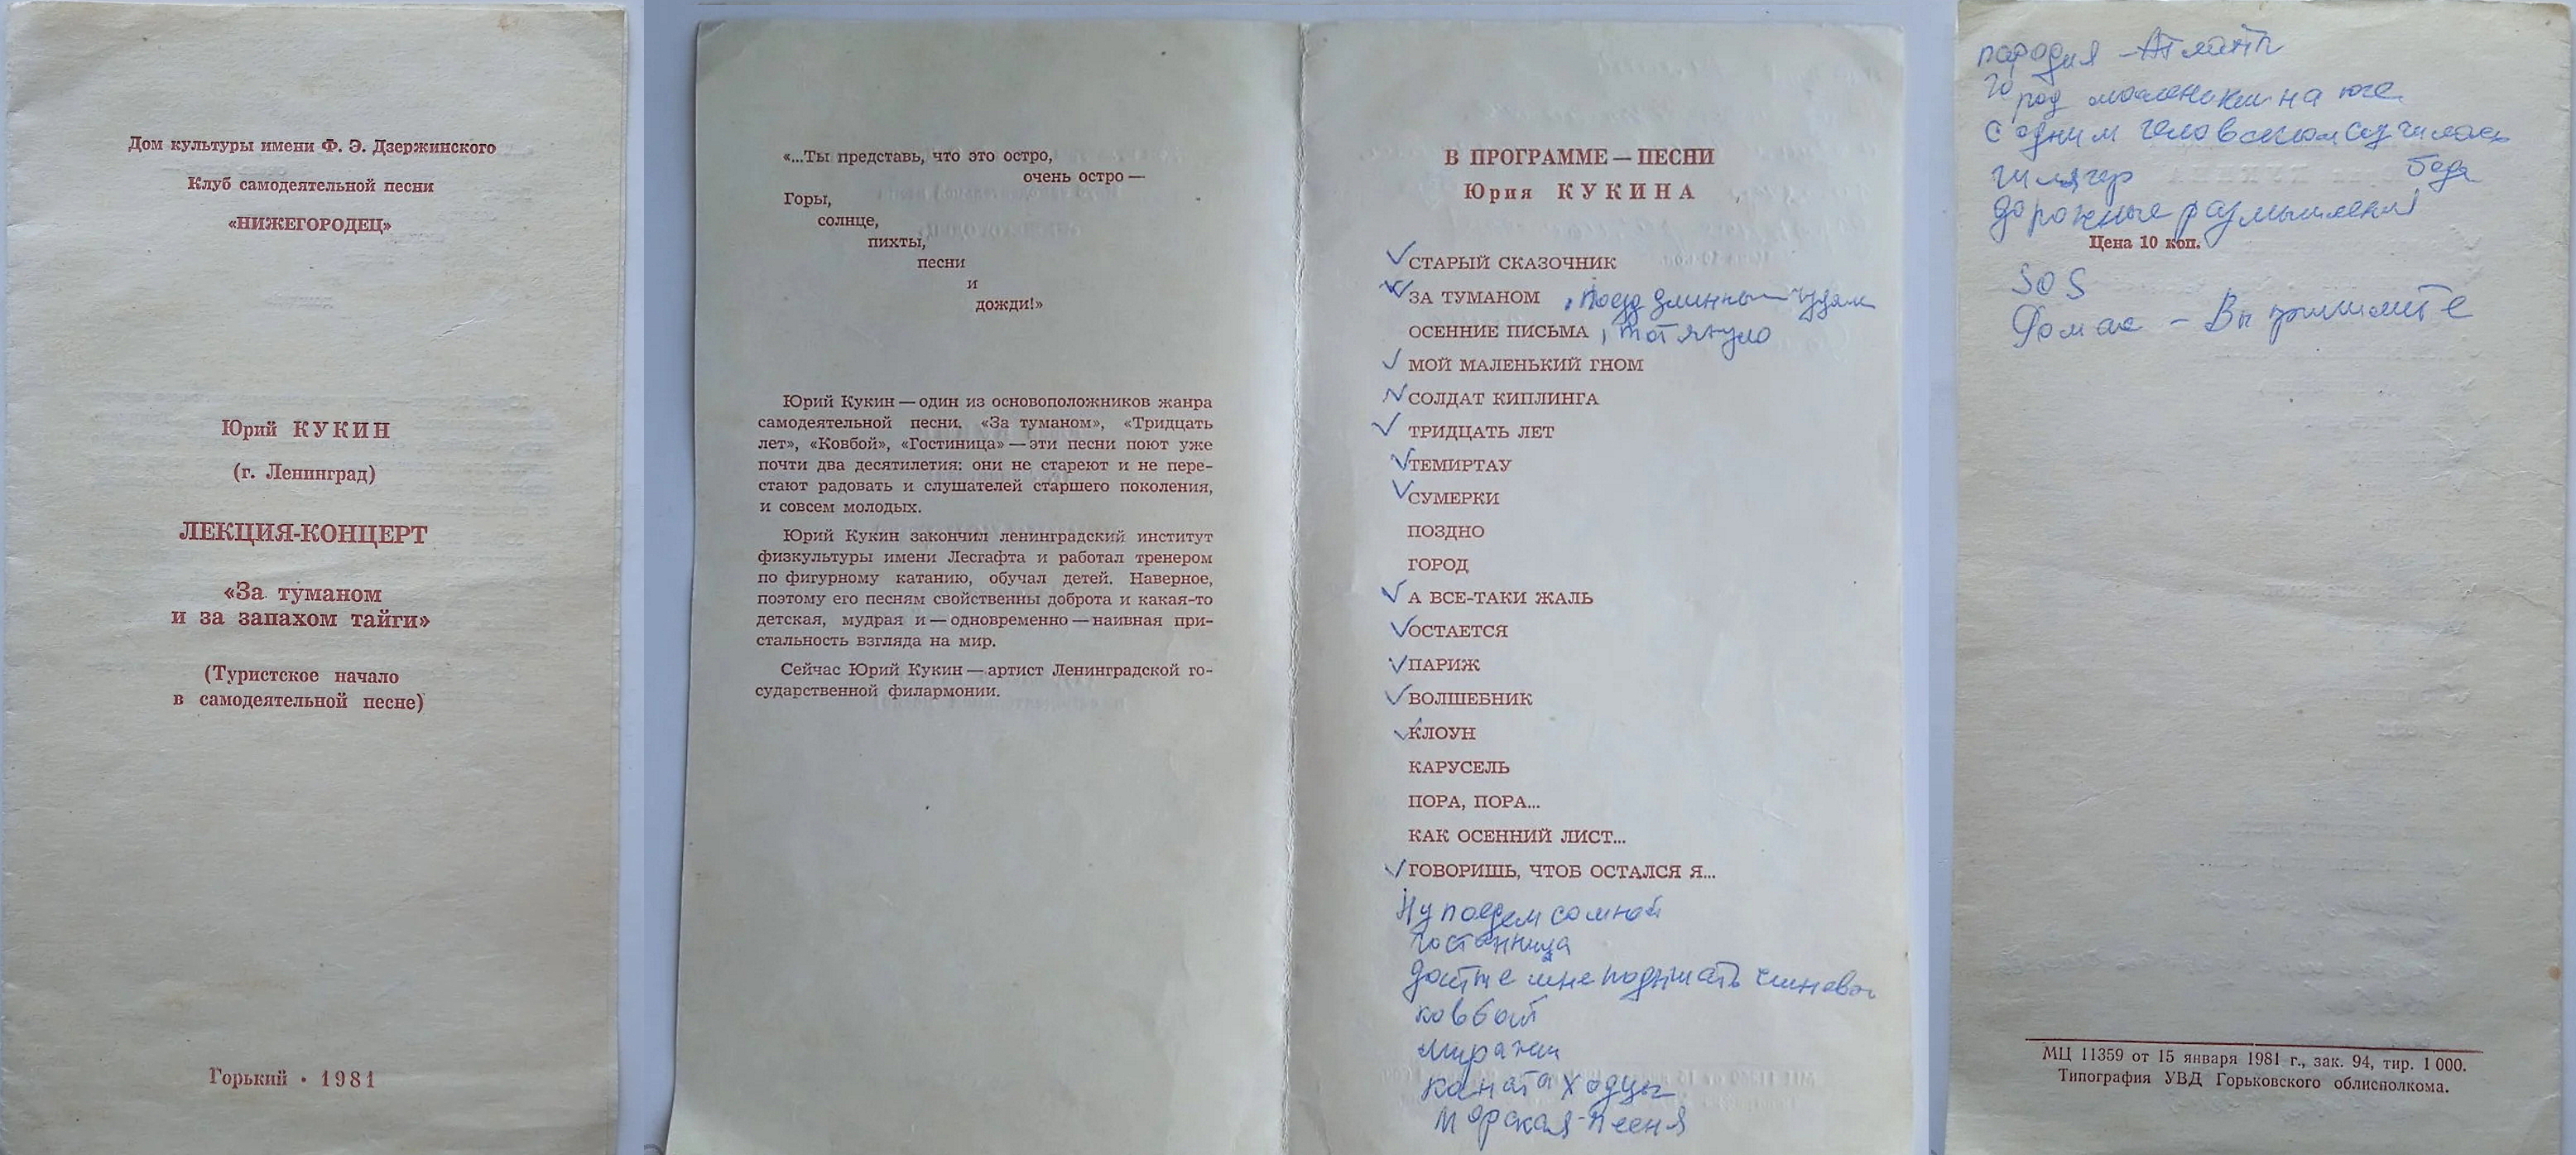 Дом культуры имени Ф. Э. Дзержинского
Клуб самодеятельной песни
«НИЖЕГОРОДЕЦ»
Юрий КУКИН
(г. Ленинград)
ЛЕКЦИЯ-КОНЦЕРТ
«За туманом
и за запахом тайги»
(Туристское начало
в самодеятельной песне)
Горький • 1981
«...Ты представь, что это остро,
очень остро —
Горы,
солнце,
пихты,
песни
и
дожди!»
Юрий Кукин — один из основоположников жанра
самодеятельной песни. «За туманом», «Тридцать
лет», «Ковбой», «Гостиница» — эти песни поют уже
почти два десятилетия: они не стареют и не пере-
стают радовать и слушателей старшего поколения,
и совсем молодых.
Юрий Кукин закончил ленинградский институт
физкультуры имени Лесгафта и работал тренером
по фигурному катанию, обучал детей. Наверное,
поэтому его песням свойственны доброта и какая-то
детская, мудрая и — одновременно — наивная при-
стальность взгляда на мир.
Сейчас Юрий Кукин — артист Ленинградской го-
сударственной филармонии.
В ПРОГРАММЕ — ПЕСНИ
Юрия КУКИНА
СТАРЫЙ СКАЗОЧНИК
ЗА ТУМАНОМ , поезд длинный
ОСЕННИЕ ПИСЬМА
МОЙ МАЛЕНЬКИЙ ГНОМ
СОЛДАТ КИПЛИНГА
ТРИДЦАТЬ ЛЕТ
ТЕМИРТАУ
СУМЕРКИ
ПОЗДНО
ГОРОД
А ВСЕ-ТАКИ ЖАЛЬ
ОСТАЕТСЯ
ПАРИЖ
ВОЛШЕБНИК
КЛОУН
КАРУСЕЛЬ
ПОРА, ПОРА...
КАК ОСЕННИЙ ЛИСТ...
ГОВОРИШЬ, ЧТОБ ОСТАЛСЯ Я...
Ну поедем со мной
Гостиница
мне
ковбой
миражи
канатаходцы
Морская песня
пародия - Атланты
город маленький на юге
С одним человеком случилась
беда
шлягер
дорожные размышления
Цена 10 коп.
SOS
Вы
МЦ 11359 от 15 января 1981 г., зак. 94, тир. 1 000.
Типография УВД Горьковского облисполкома.